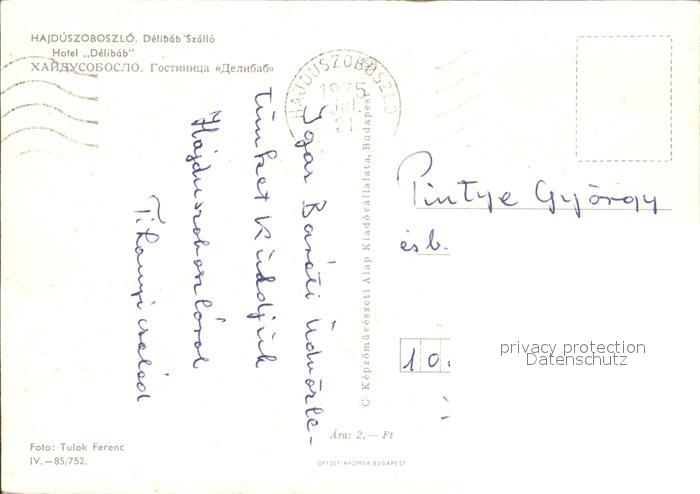 HAJDÚSZOBOSZLÓ. Délibáb Szálló
Hotel „Délibáb"
ХАЙДУСОБОСЛО. Гостиница «Делибаб»
HAJDÚSZOBOSZLÓ
1975
Igaz Baráti Üdvözle-
tünket Küldjük
Hajduszoboszlóról
Tihanyi család
© Képzőművészeti Alap Kiadóvállalata, Budapest
Pintye György
és b.
10.
privacy protection
Datenschutz
Ára: 2,— Ft
Foto: Tulok Ferenc
IV.—85/752.
OFFSET-NYOMDA BUDAPEST